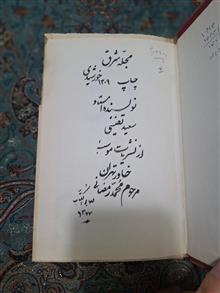 مجلّه شرق
چاپ ۱۳۰۹ خورشیدی
نویسنده استاد
سعید نفیسی
از نشریات موسسه
خاور تهران
مرحوم محمد رمضانی